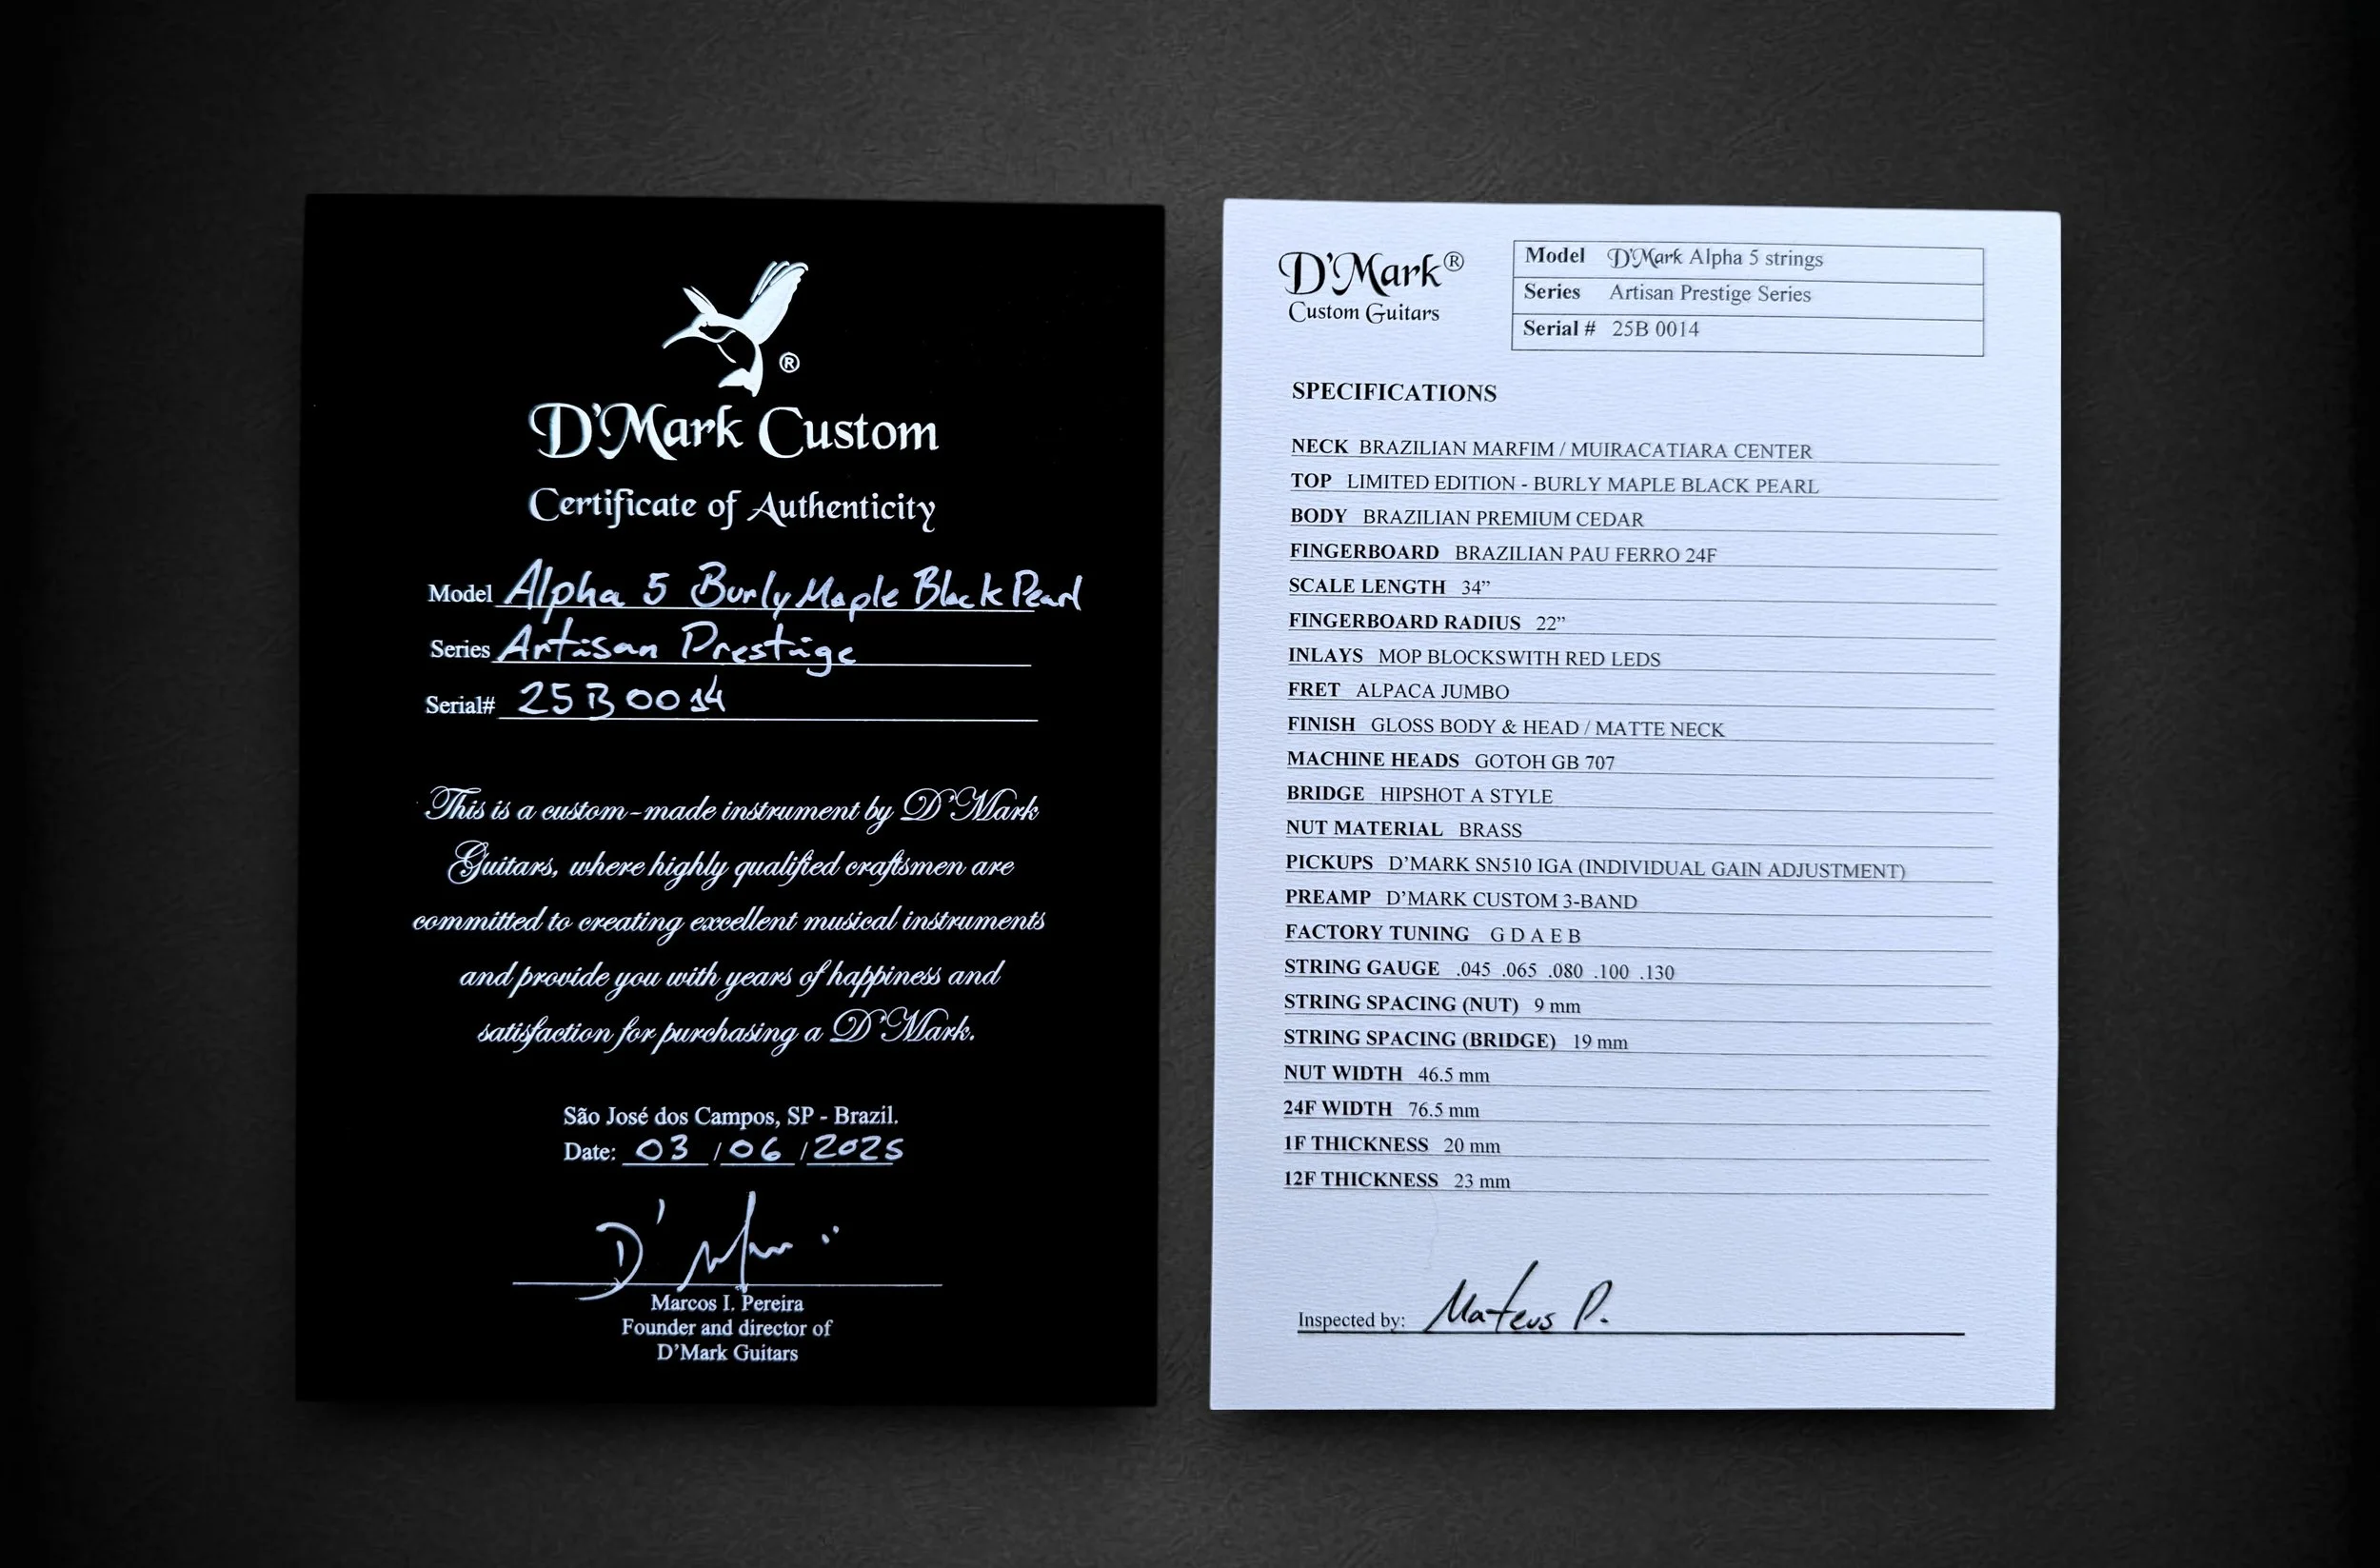 ®
D'Mark Custom
Certificate of Authenticity
Model Alpha 5 Burly Maple Black Pearl
Series Artisan Prestige
Serial# 25B 0014
This is a custom-made instrument by D'Mark
Guitars, where highly qualified craftsmen are
committed to creating excellent musical instruments
and provide you with years of happiness and
satisfaction for purchasing a D'Mark.
São José dos Campos, SP - Brazil.
Date: 03 / 06 / 2025
Marcos I. Pereira
Founder and director of
D'Mark Guitars
D'Mark®
Custom Guitars
Model D'Mark Alpha 5 strings
Series Artisan Prestige Series
Serial # 25B 0014
SPECIFICATIONS
NECK BRAZILIAN MARFIM / MUIRACATIARA CENTER
TOP LIMITED EDITION - BURLY MAPLE BLACK PEARL
BODY BRAZILIAN PREMIUM CEDAR
FINGERBOARD BRAZILIAN PAU FERRO 24F
SCALE LENGTH 34”
FINGERBOARD RADIUS 22”
INLAYS MOP BLOCKSWITH RED LEDS
FRET ALPACA JUMBO
FINISH GLOSS BODY & HEAD / MATTE NECK
MACHINE HEADS GOTOH GB 707
BRIDGE HIPSHOT A STYLE
NUT MATERIAL BRASS
PICKUPS D'MARK SN510 IGA (INDIVIDUAL GAIN ADJUSTMENT)
PREAMP D'MARK CUSTOM 3-BAND
FACTORY TUNING G D A E B
STRING GAUGE .045 .065 .080 .100 .130
STRING SPACING (NUT) 9 mm
STRING SPACING (BRIDGE) 19 mm
NUT WIDTH 46.5 mm
24F WIDTH 76.5 mm
1F THICKNESS 20 mm
12F THICKNESS 23 mm
Inspected by: Mateus P.